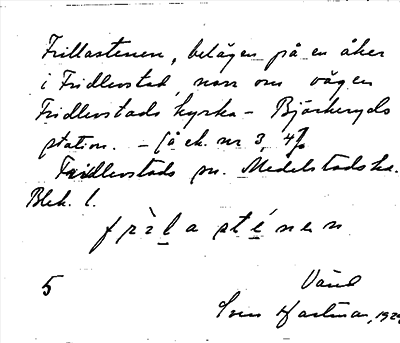 Frillastenen, belägen på en åker
i Fridlevstad, norr om vägen
Fridlevstads kyrka - Björkeryds
station. - (å ek. nr 3, 4%
Fridlevstads sn. Medelstads hd.
Blek. l.
frìl̲a sté̲nen
Vänd
5
Sven Hartman, 192